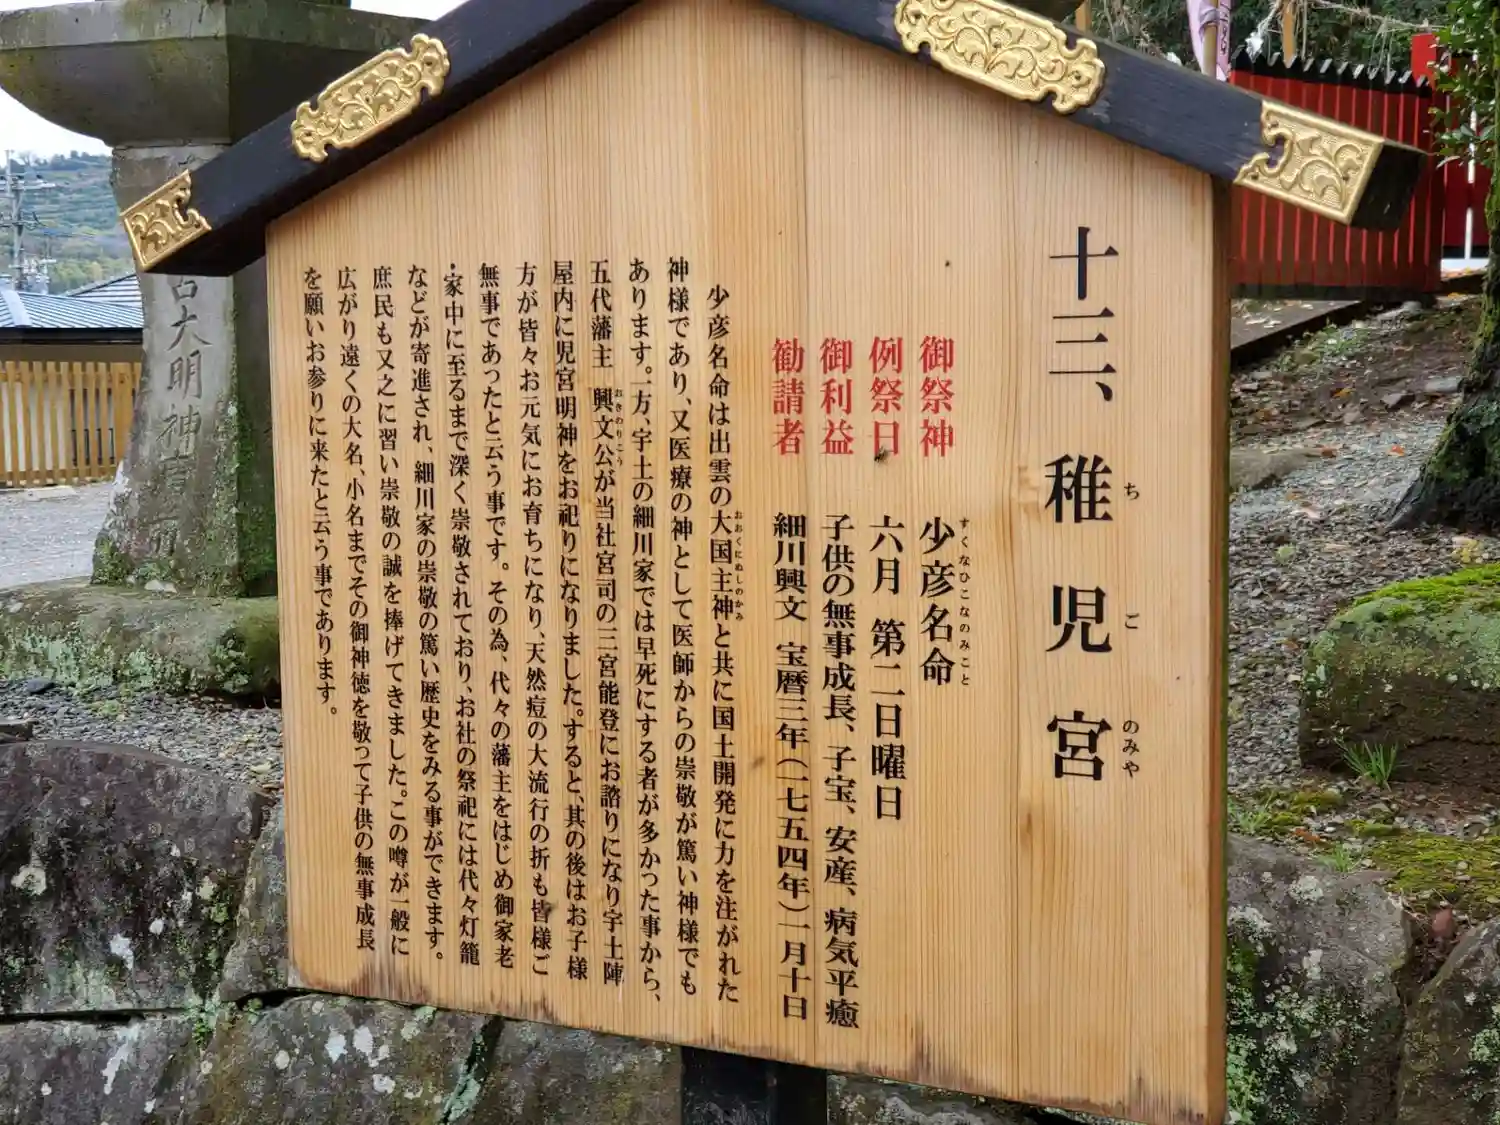 十三、稚児宮
ちごのみや
御祭神 少彦名命
すくなひこなのみこと
例祭日 六月 第二日曜日
御利益 子供の無事成長、子宝、安産、病気平癒
勧請者 細川興文 宝暦三年(一七五四年)一月十日
少彦名命は出雲の大国主神と共に国土開発に力を注がれた
おおくにぬしのかみ
神様であり、又医療の神として医師からの崇敬が篤い神様でも
あります。一方、宇土の細川家では早死にする者が多かった事から、
五代藩主 興文公が当社宮司の三宮能登にお諮りになり宇土陣
おきのりこう
屋内に児宮明神をお祀りになりました。すると、其の後はお子様
方が皆々お元気にお育ちになり、天然痘の大流行の折も皆様ご
無事であったと云う事です。その為、代々の藩主をはじめ御家老
・家中に至るまで深く崇敬されており、お社の祭祀には代々灯籠
などが寄進され、細川家の崇敬の篤い歴史をみる事ができます。
庶民も又之に習い崇敬の誠を捧げてきました。この噂が一般に
広がり遠くの大名、小名までその御神徳を敬って子供の無事成長
を願いお参りに来たと云う事であります。
大明神